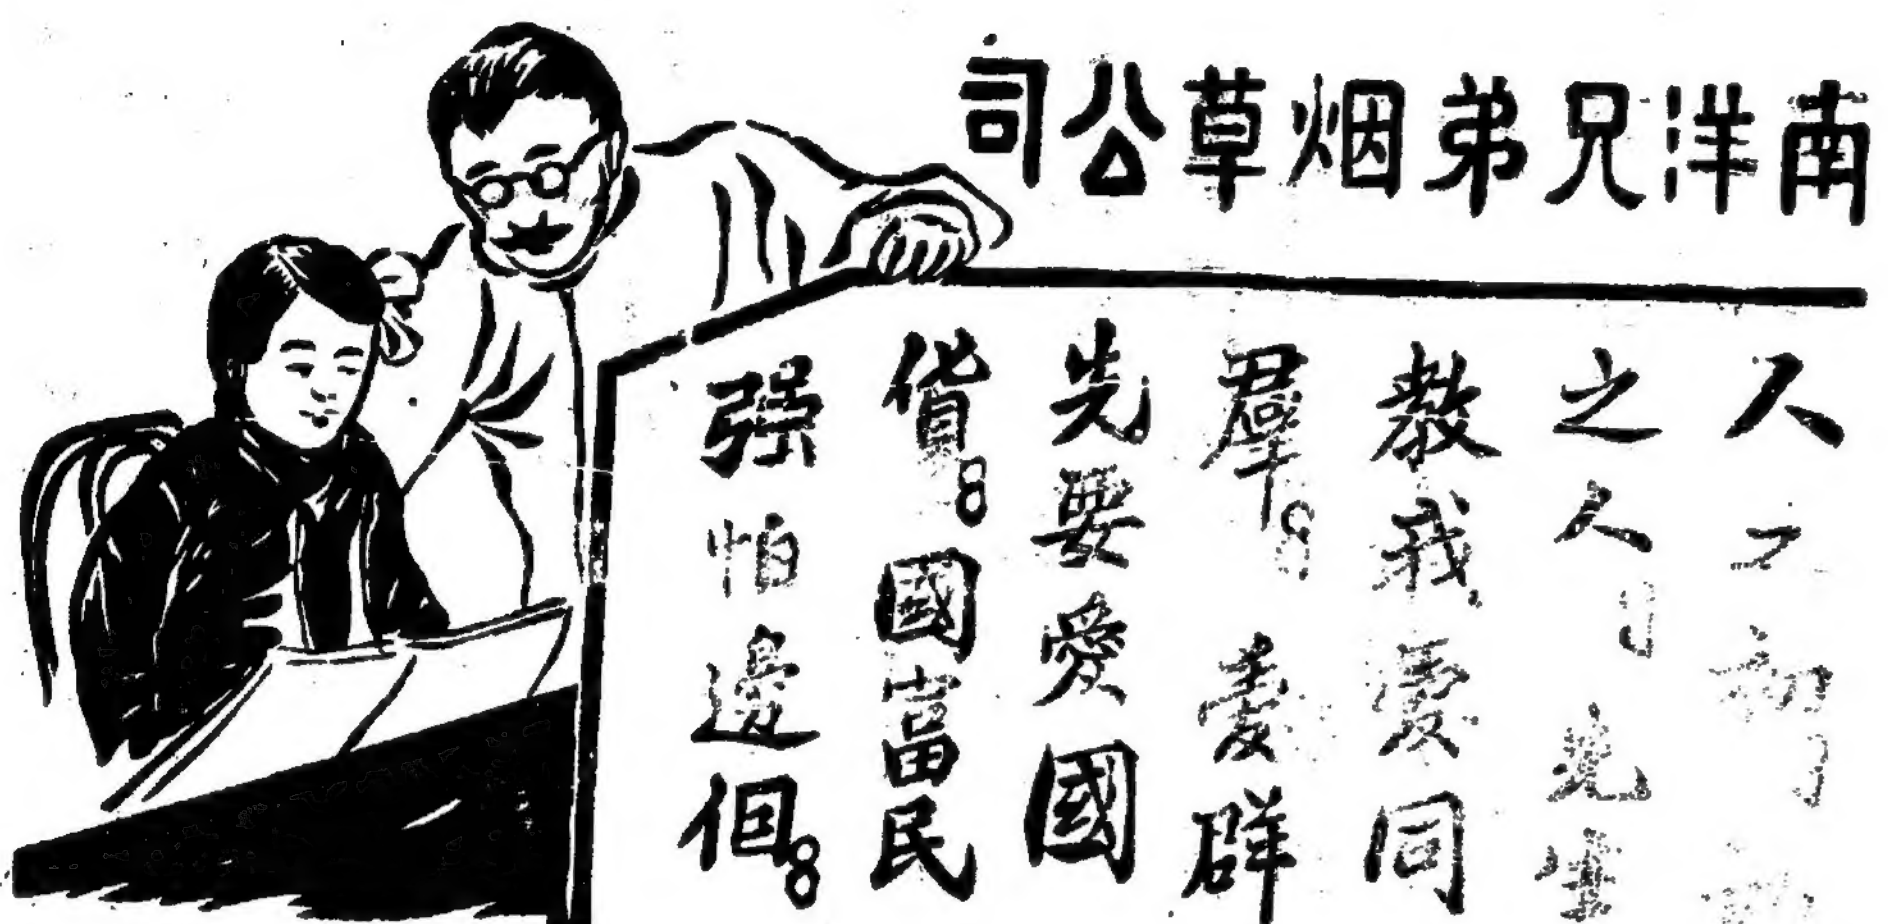 南洋兄弟烟草公司
人之初
之人先生
教我愛同
羣。愛群
先要愛國
貨。國富民
强怕邊個。